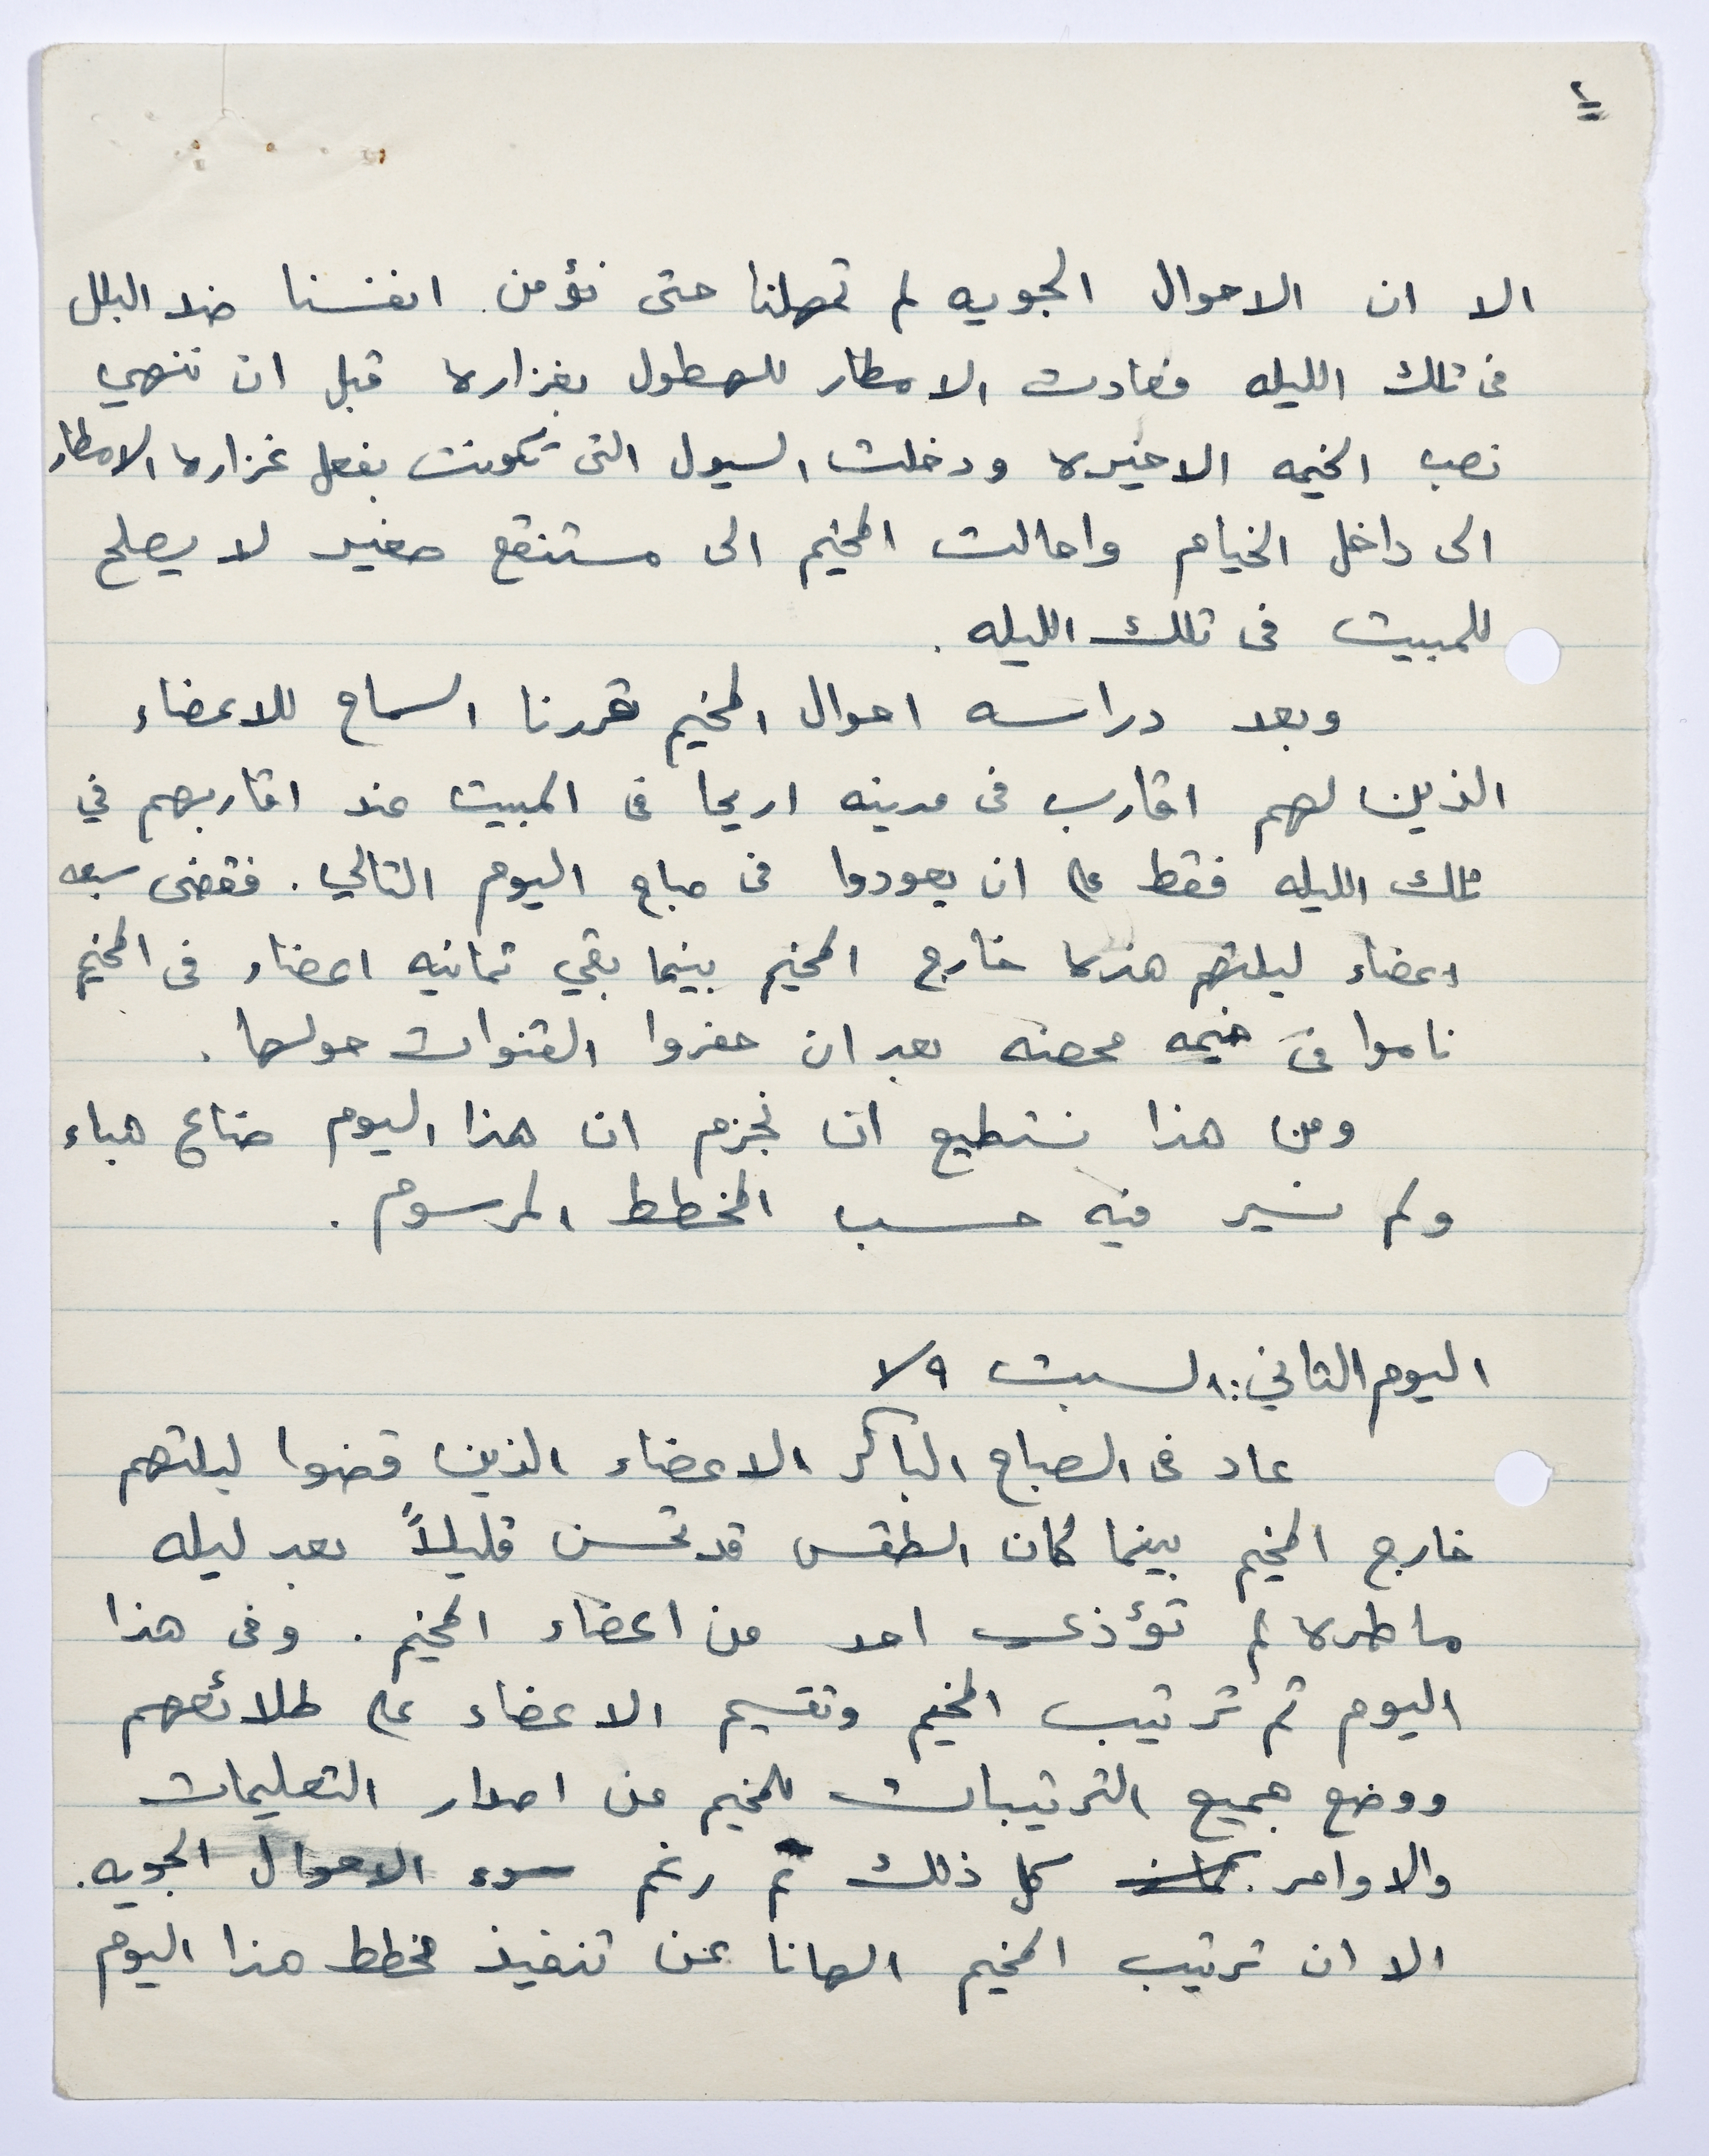 ٢
الا ان الاحوال الجويه لم تمهلنا حتى نؤمن انفسنا ضد البلل
فى تلك الليله فعادت الامطار للهطول بغزاره قبل ان ننهي
نصب الخيمه الاخيره ودخلت السيول التى تكونت بفعل غزاره الامطار
الى داخل الخيام واحالت المخيم الى مستنقع صغير لا يصلح
للمبيت فى تلك الليله .
وبعد دراسه احوال المخيم قررنا السماح للاعضاء
الذين لهم اقارب فى مدينه اريحا فى المبيت عند اقاربهم في
تلك الليله فقط على ان يعودوا فى صباح اليوم التالي . فقضى سبعه
اعضاء ليلتهم هذه خارج المخيم بينما بقي ثمانيه اعضاء فى المخيم
ناموا فى خيمه محصنه بعد ان حفروا القنوات حولها .
ومن هذا نستطيع ان نجزم ان هذا اليوم ضاع هباء
ولم نسير فيه حسب المخطط المرسوم .
اليوم الثاني : السبت ٩/١
عاد فى الصباح الباكر الاعضاء الذين قضوا ليلتهم
خارج المخيم بينما كان الطقس قد تحسن قليلاً بعد ليله
ماطره لم تؤذي احد من اعضاء المخيم . وفى هذا
اليوم تم ترتيب المخيم وتقسيم الاعضاء على طلائعهم
ووضع جميع الترتيبات للمخيم من اصدار التعليمات
والاوامر . كل ذلك تم رغم سوء الاحوال الجويه .
الا ان ترتيب المخيم الهانا عن تنفيذ مخطط هذا اليوم